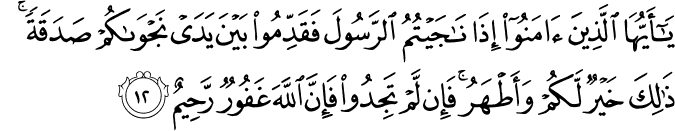 يَٰٓأَيُّهَا ٱلَّذِينَ ءَامَنُوٓا۟ إِذَا نَٰجَيْتُمُ ٱلرَّسُولَ فَقَدِّمُوا۟ بَيْنَ يَدَىْ نَجْوَىٰكُمْ صَدَقَةً ۚ
ذَٰلِكَ خَيْرٌ لَّكُمْ وَأَطْهَرُ ۚ فَإِن لَّمْ تَجِدُوا۟ فَإِنَّ ٱللَّهَ غَفُورٌ رَّحِيمٌ ١٢